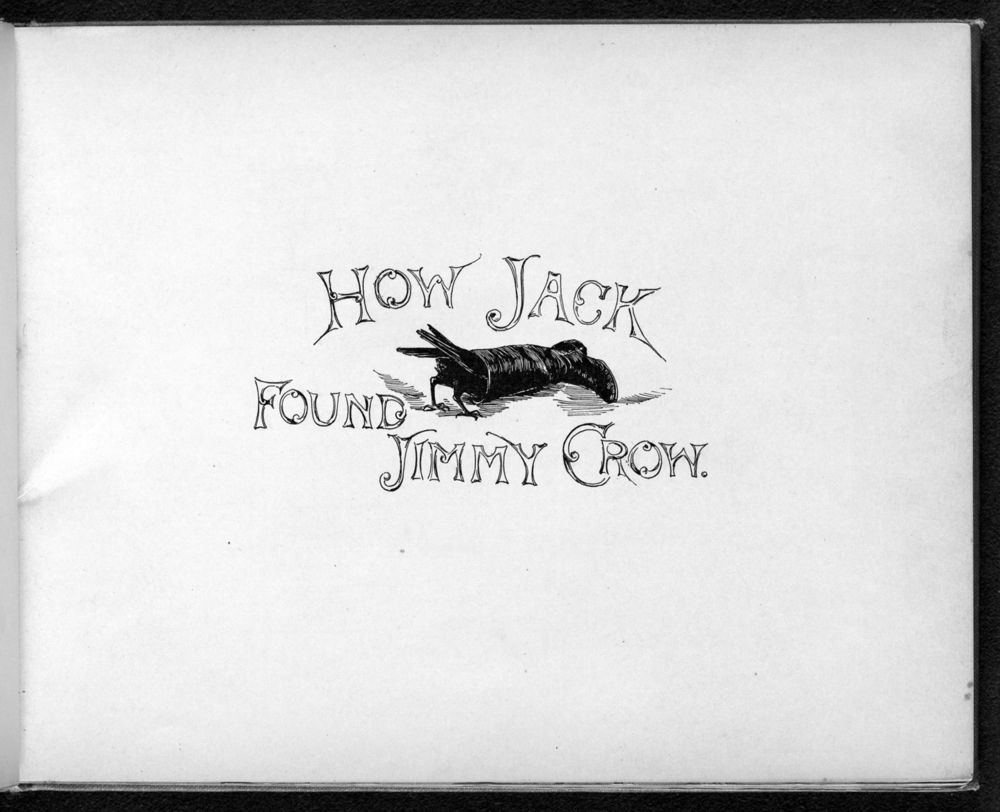 HOW JACK
FOUND
JIMMY CROW.